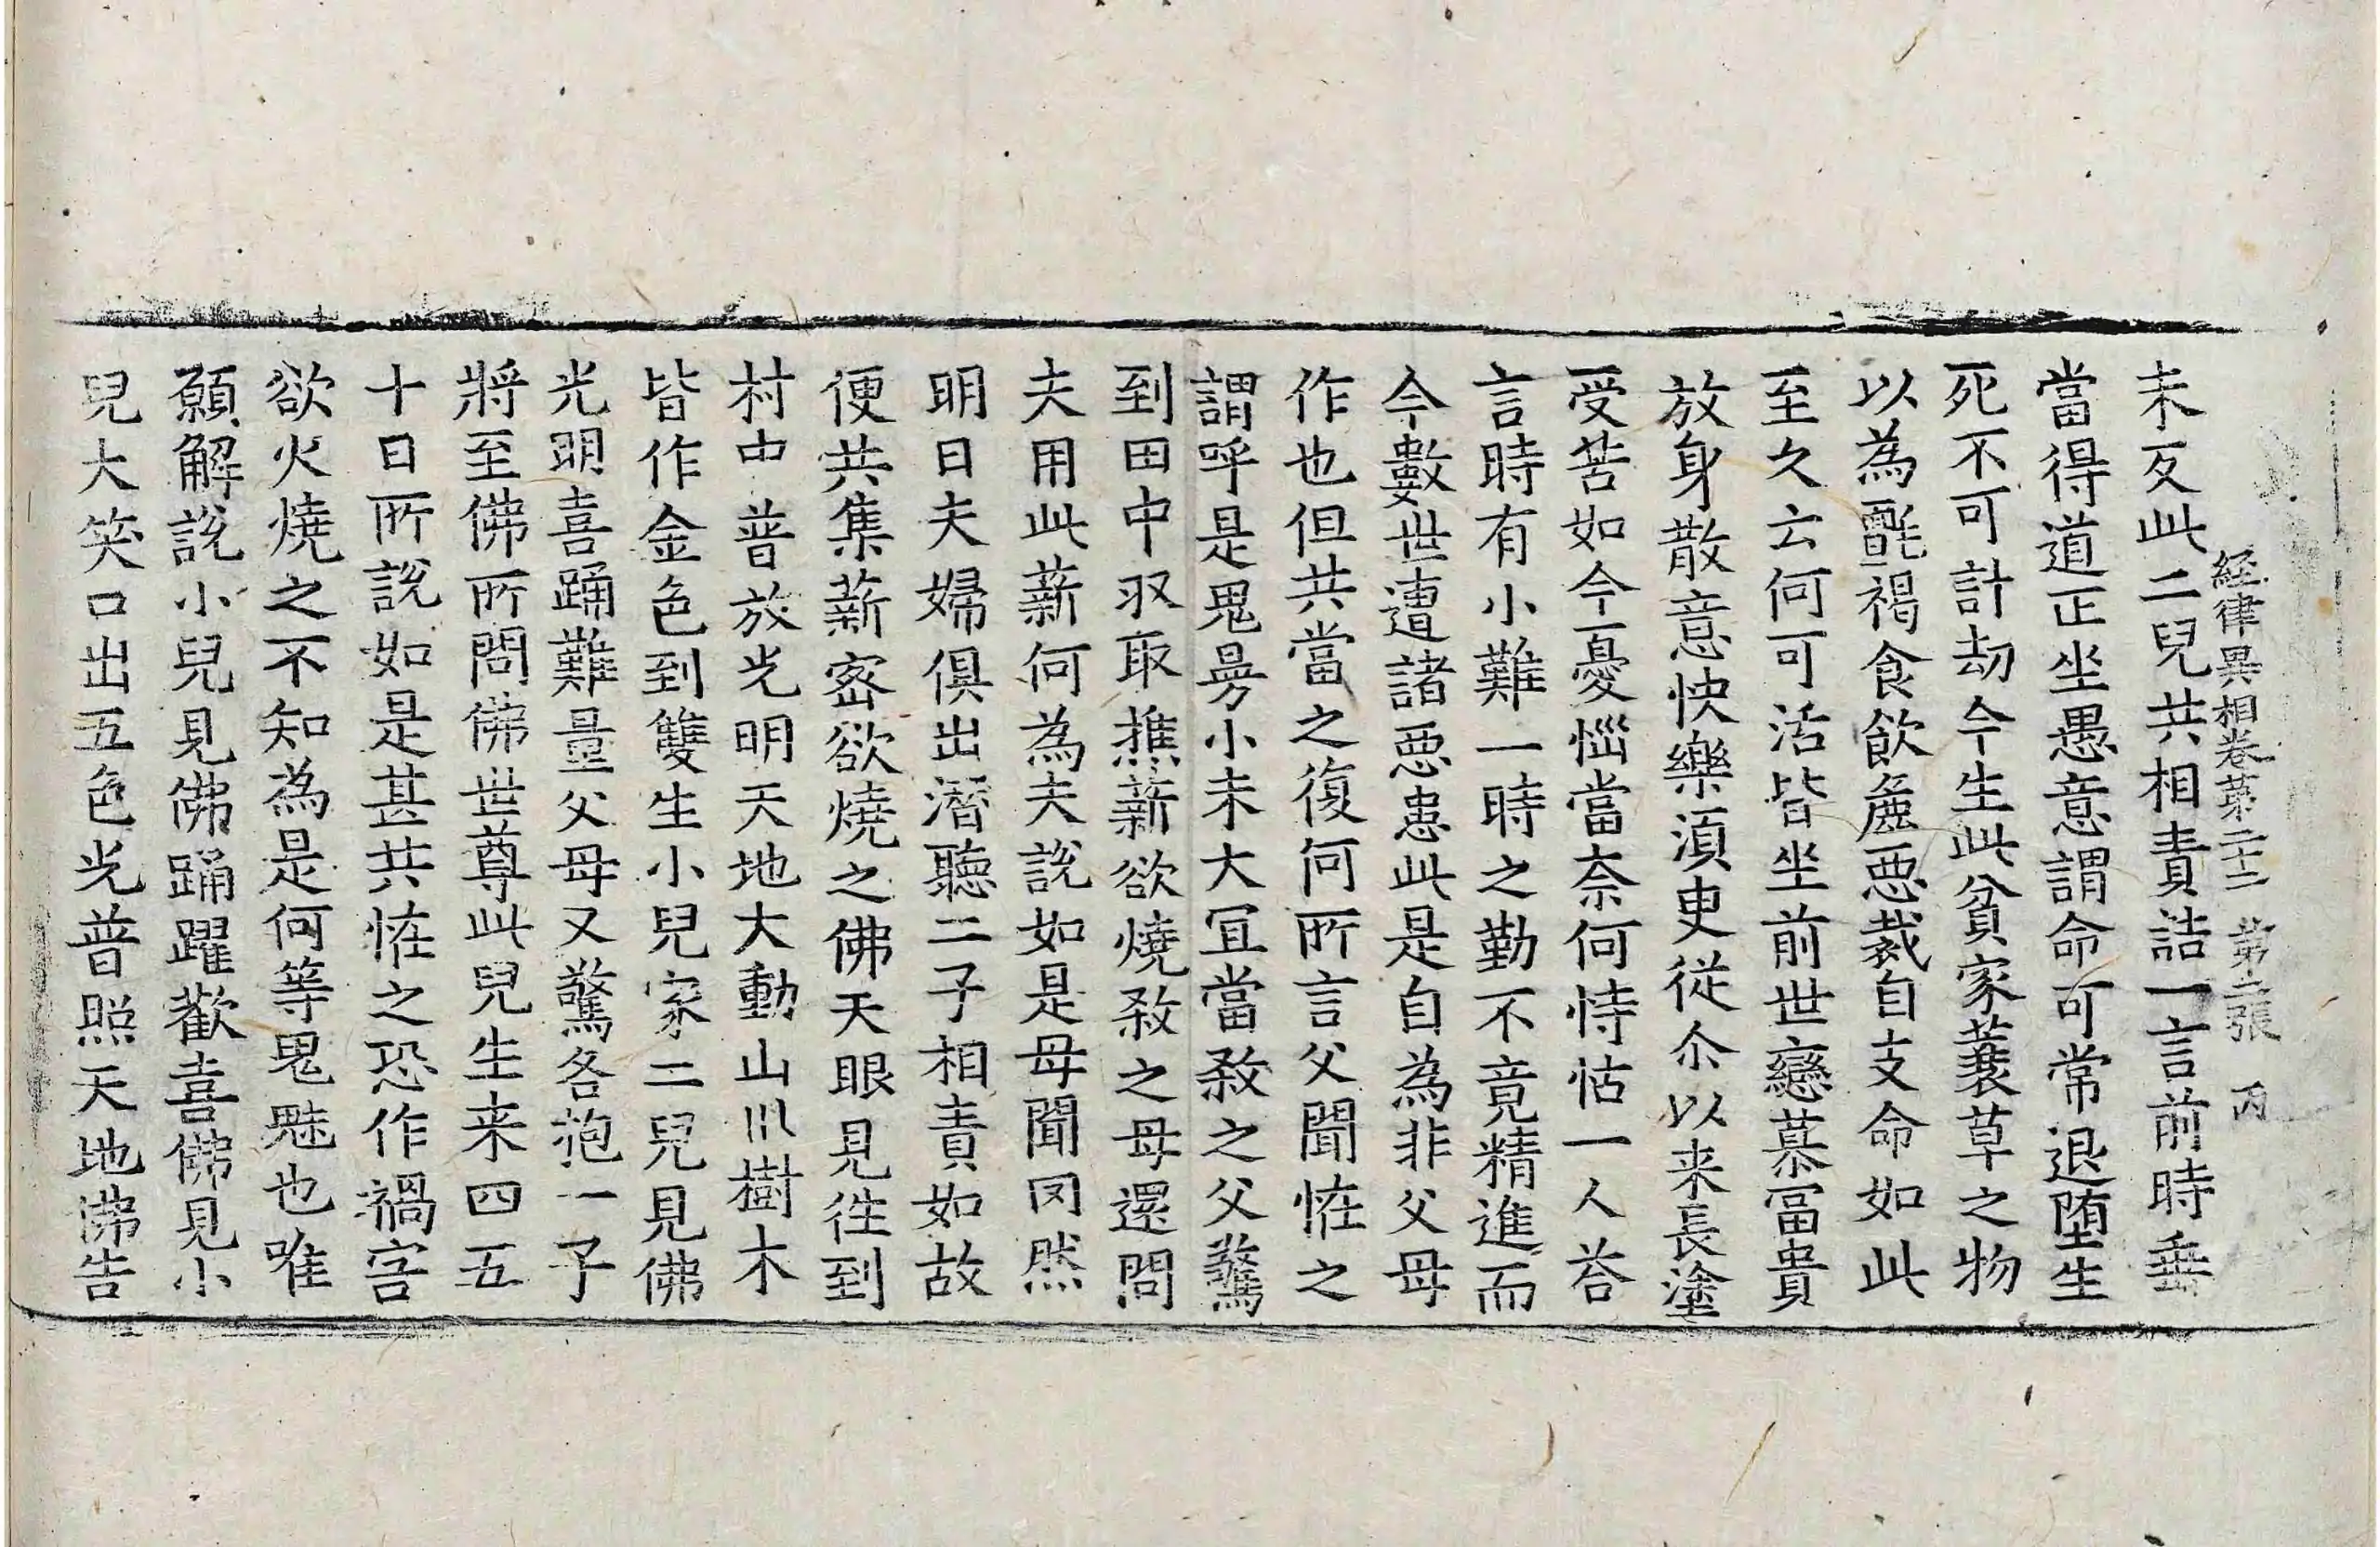 經律異相卷第二十二 第二張 丙
未反此二兒共相責詰一言前時垂
當得道正坐愚意謂命可常退堕生
死不可計劫今生此貧家蓑草之物
以為氈褐食飲麁惡裁自支命如此
至久云何可活皆坐前世戀慕冨貴
放身散意快樂湏更從尒以来長塗
受苦如今憂惱當奈何恃怙一人荅
言時有小難一時之勤不竟精進而
今數世遭諸惡患此是自為非父母
作也但共當之復何所言父聞恠之
謂呼是鬼昜小未大冝當殺之父驚
到田中収取樵薪欲燒殺之母還問
夫用此薪何為夫說如是母聞罔然
明日夫婦俱出潛聽二子相責如故
便共集薪密欲燒之佛天眼見徃到
村中普放光明天地大動山川樹木
皆作金色到雙生小兒家二兒見佛
光明喜踊難量父母又驚各抱一子
將至佛所問佛世尊此兒生来四五
十日所說如是甚共恠之恐作禍害
欲火燒之不知為是何等鬼魅也唯
願解說小兒見佛踊躍歡喜佛見小
兒大笑口出五色光普照天地佛告